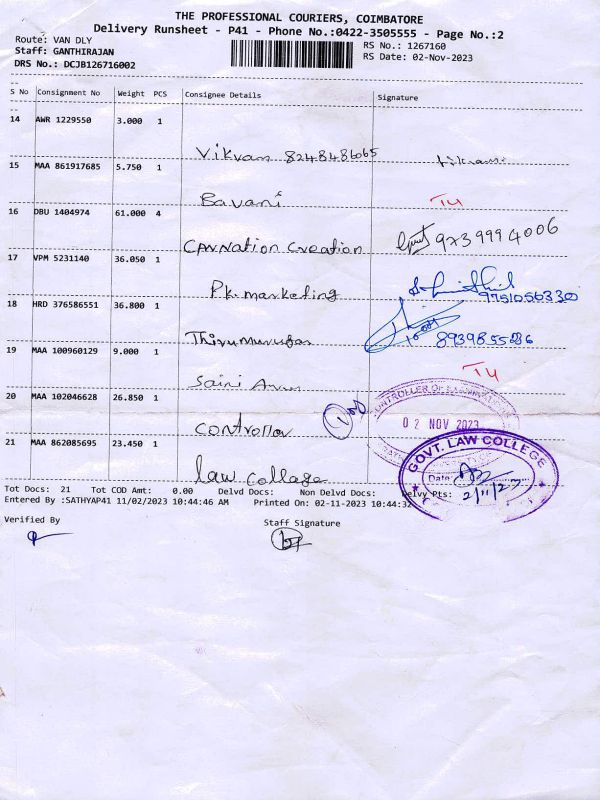 THE PROFESSIONAL COURIERS, COIMBATORE
Delivery Runsheet - P41 - Phone No.:0422-3505555 - Page No.:2
Route: VAN DLY
Staff: GANTHIRAJAN
DRS No.: DCJB126716002
RS No.: 1267160
RS Date: 02-Nov-2023
S No Consignment No Weight PCS Consignee Details Signature
14 AWR 1229550 3.000 1
Vikram 8248486065 Vikram
15 MAA 861917685 5.750 1
Bavani
16 DBU 1404974 61.000 4
Carnation Creation 9739994006
17 VPM 5231140 36.050 1
Pk.marketing 9751056330
18 HRD 376586551 36.800 1
Thirumurugan 8939855036
19 MAA 100960129 9.000 1
Saini
20 MAA 102046628 26.850 1
Controller
CONTROLLER OF
02 NOV 2023
21 MAA 862085695 23.450 1
law college
GOVT. LAW COLLEGE
Date:
2/11/23
Tot Docs: 21 Tot COD Amt: 0.00 Delvd Docs: Non Delvd Docs: Delvy Pts:
Entered By :SATHYAP41 11/02/2023 10:44:46 AM Printed On: 02-11-2023 10:44:32
Verified By
Staff Signature